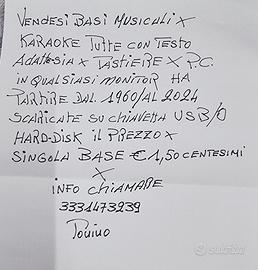 VENDESI BASI MUSICALI X
KARAOKE TUTTE CON TESTO
ADATTESIA X TASTIERE X P.C.
IN QUALSIASI MONITOR HA
PARTIRE DAL 1960/AL 2024
SCARICATE SU CHIAVETTA USB/O
HARD-DISK IL PREZZO X
SINGOLA BASE € 1,50 CENTESIMI
X
INFO CHIAMARE
3331473239
Tonino
subito